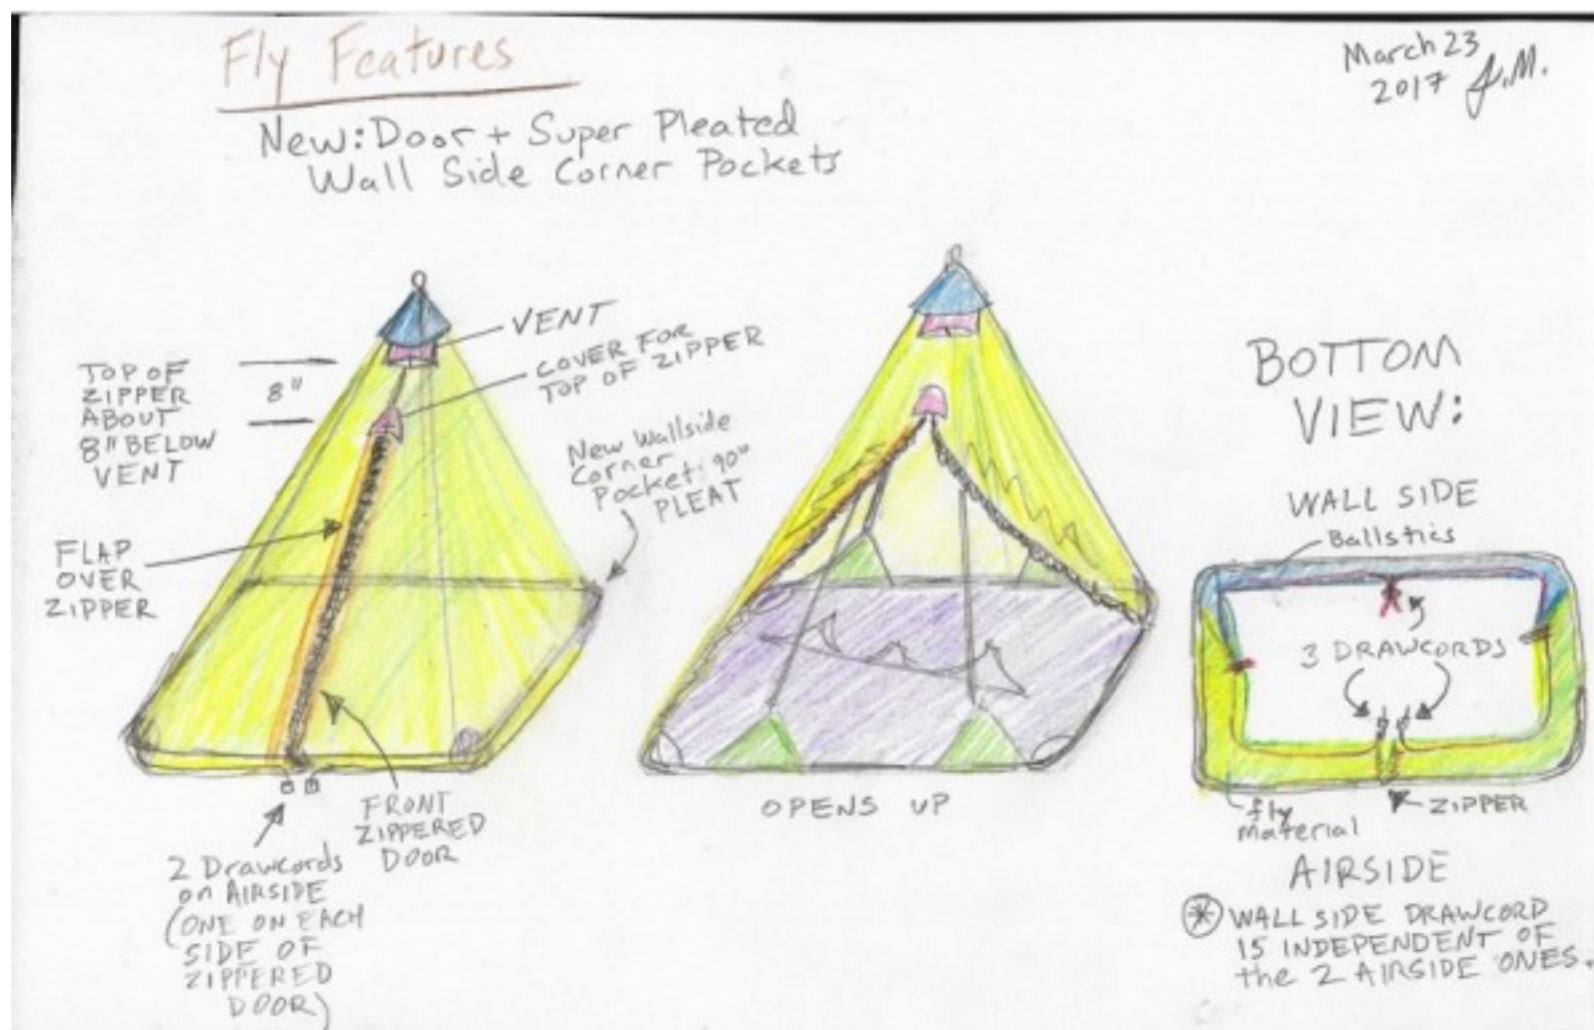 Fly Features
March 23
2017 J.M.
New: Door + Super Pleated
Wall Side Corner Pockets
TOP OF
ZIPPER
ABOUT
8" BELOW
VENT
8"
VENT
COVER FOR
TOP OF ZIPPER
New Wallside
Corner
Pocket: 90°
PLEAT
FLAP
OVER
ZIPPER
FRONT
ZIPPERED
DOOR
2 Drawcords
on AIRSIDE
(ONE ON EACH
SIDE OF
ZIPPERED
DOOR)
OPENS UP
BOTTOM
VIEW:
WALL SIDE
Ballstics
3 DRAWCORDS
ZIPPER
fly
material
AIRSIDE
* WALL SIDE DRAWCORD
IS INDEPENDENT OF
the 2 AIRSIDE ONES.